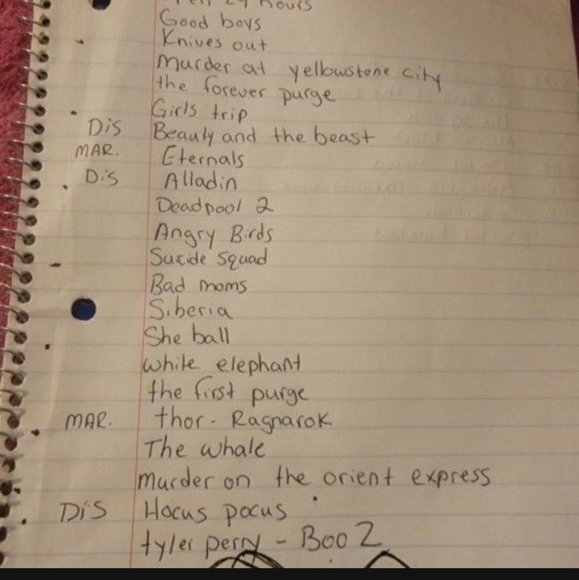 hours
Good boys
Knives out
Murder at yellowstone city
the forever purge
Girls trip
Dis Beauty and the beast
MAR. Eternals
Dis Alladin
Deadpool 2
Angry Birds
Suicide Squad
Bad moms
Siberia
She ball
white elephant
the first purge
MAR. thor - Ragnarok
The whale
murder on the orient express
Dis Hocus pocus
tyler perry - Boo 2